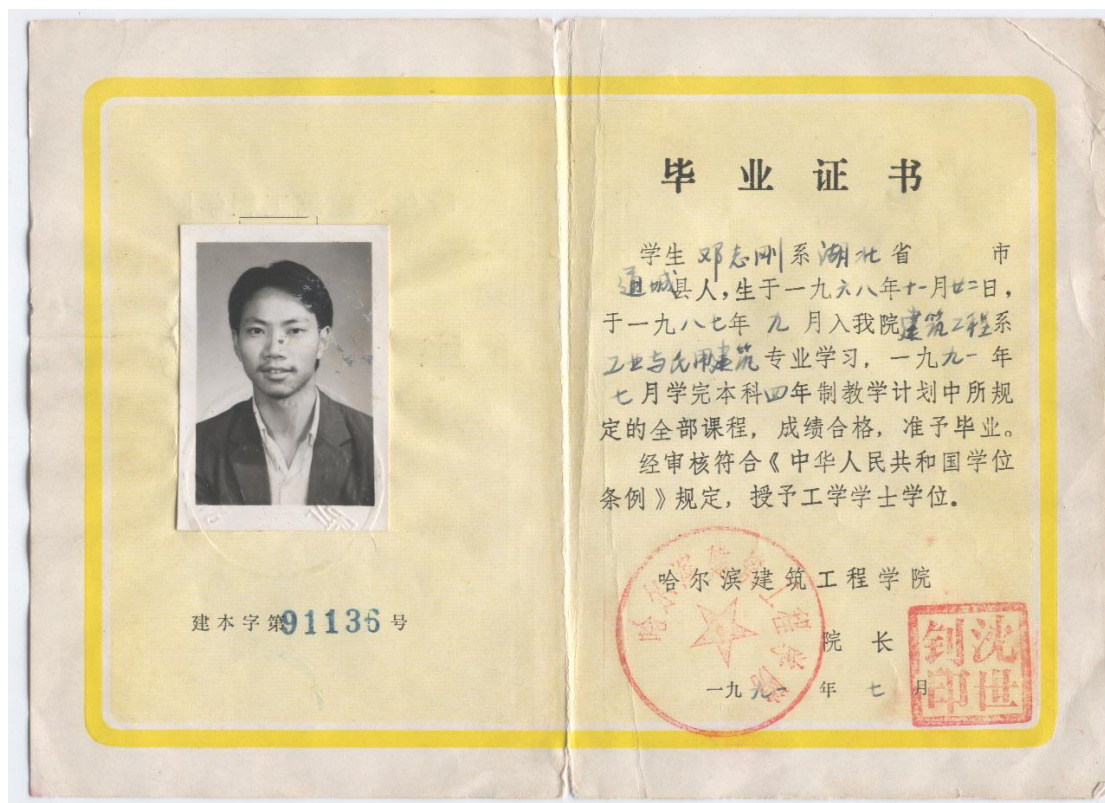 建本字第91136号
毕业证书
学生邓志刚系湖北省 市
通城县人，生于一九六八年十一月廿二日，
于一九八七年九月入我院建筑工程系
工业与民用建筑专业学习，一九九一年
七月学完本科四年制教学计划中所规
定的全部课程，成绩合格，准予毕业。
经审核符合《中华人民共和国学位
条例》规定，授予工学学士学位。
哈尔滨建筑工程学院
院 长
一九九一年七月
哈尔滨建筑工程学院
沈世钊印